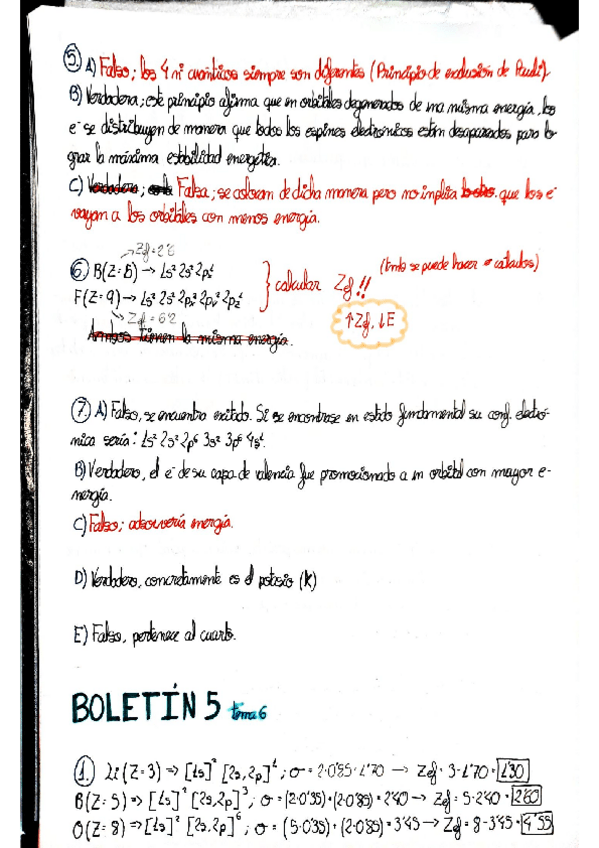 5. A) Falso; los 4 nº cuánticos siempre son diferentes (Principio de exclusión de Pauli).
B) Verdadera; este principio afirma que en orbitales degenerados de una misma energía, los
e⁻ se distribuyen de manera que todos los espines electrónicos están desapareados para lo-
grar la máxima estabilidad energética.
C) Verdadera; Falsa; se colocan de dicha manera pero no implica que los e⁻
vayan a los orbitales con menos energía.
→ Zef = 2'6
6. B(Z=5) → 1s² 2s² 2p¹ } calcular Zef!! (tmb se puede hacer calculos)
F(Z=9) → 1s² 2s² 2px² 2py² 2pz¹
↑Zef, ↓E
→ Zef = 5'2
Ambos tienen la misma energía.
7. A) Falso, se encuentra excitado. Si se encontrase en estado fundamental su conf. electró-
nica sería: 1s² 2s² 2p⁶ 3s² 3p⁶ 4s¹.
B) Verdadero, el e⁻ de su capa de valencia fue promocionado a un orbital con mayor e-
nergía.
C) Falso; absorvería energía.
D) Verdadero, concretamente es el potasio (K)
E) Falso, pertenece al cuarto.
BOLETÍN 5 tema 6
1. Li(Z=3) ⇒ [1s]² [2s,2p]¹; σ = 2·0'85 = 1'70 → Zef = 3-1'70 = 1'30
B(Z=5) ⇒ [1s]² [2s,2p]³; σ = (2·0'35)+(2·0'85) = 2'40 → Zef = 5-2'40 = 2'60
O(Z=8) ⇒ [1s]² [2s,2p]⁶; σ = (5·0'35)+(2·0'85) = 3'45 → Zef = 8-3'45 = 4'55